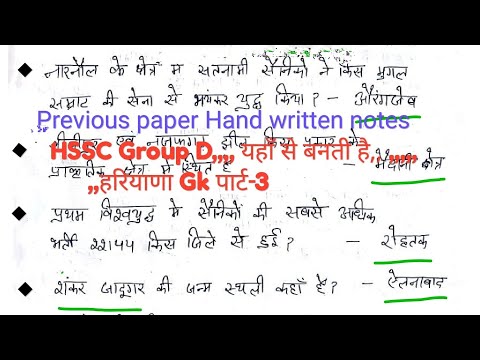 नारनौल के क्षेत्र म सतनामी सैनिको ने किस मुगल
सम्राट की सेना से भयंकर युद्ध किया? - औरंगजेब
Previous paper Hand written notes
एवं नजफगढ़ झील किस प्रकार के
HSSC Group D,,,, यहां से बनती है,, ,,,,,,
प्राकृतिक क्षेत्र में स्थित है - मैदानी क्षेत्र
,,हरियाणा Gk पार्ट-3
प्रथम विश्वयुद्ध मे सैनिकों की सबसे अधिक
भर्ती 22144 किस जिले से हुई? - रोहतक
शंकर जादूगर की जन्म स्थली कहाँ है? - ऐलनाबाद